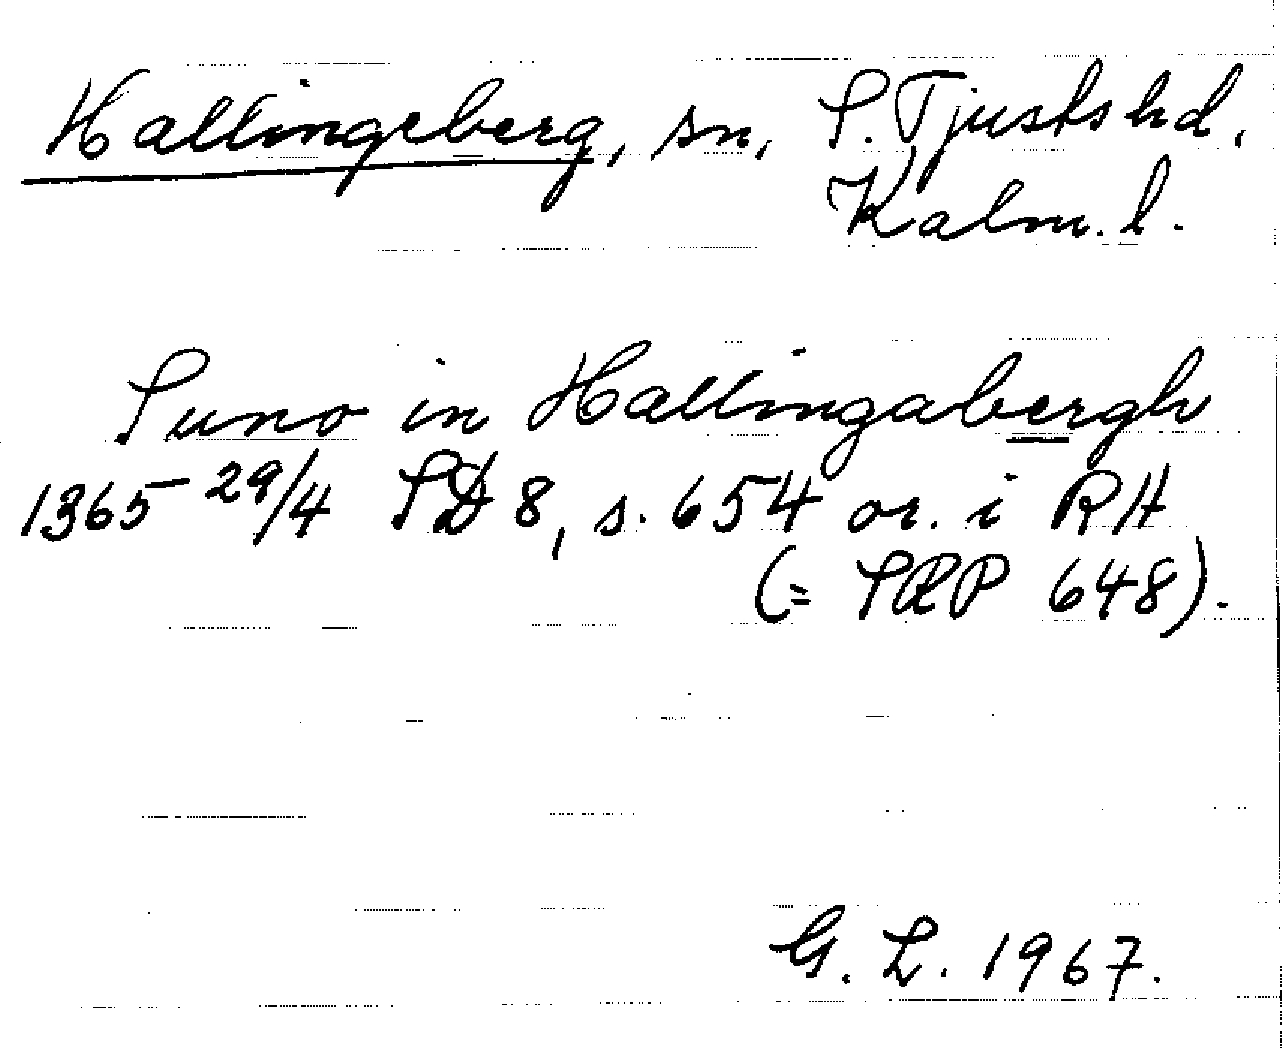 Hallingeberg, sn, S. Tjusts hd,
Kalm. l.
Suno in Hallingabergh
1365 29/4 SD 8, s. 654 or. i RH
(= SRP 648).
G. L. 1967.